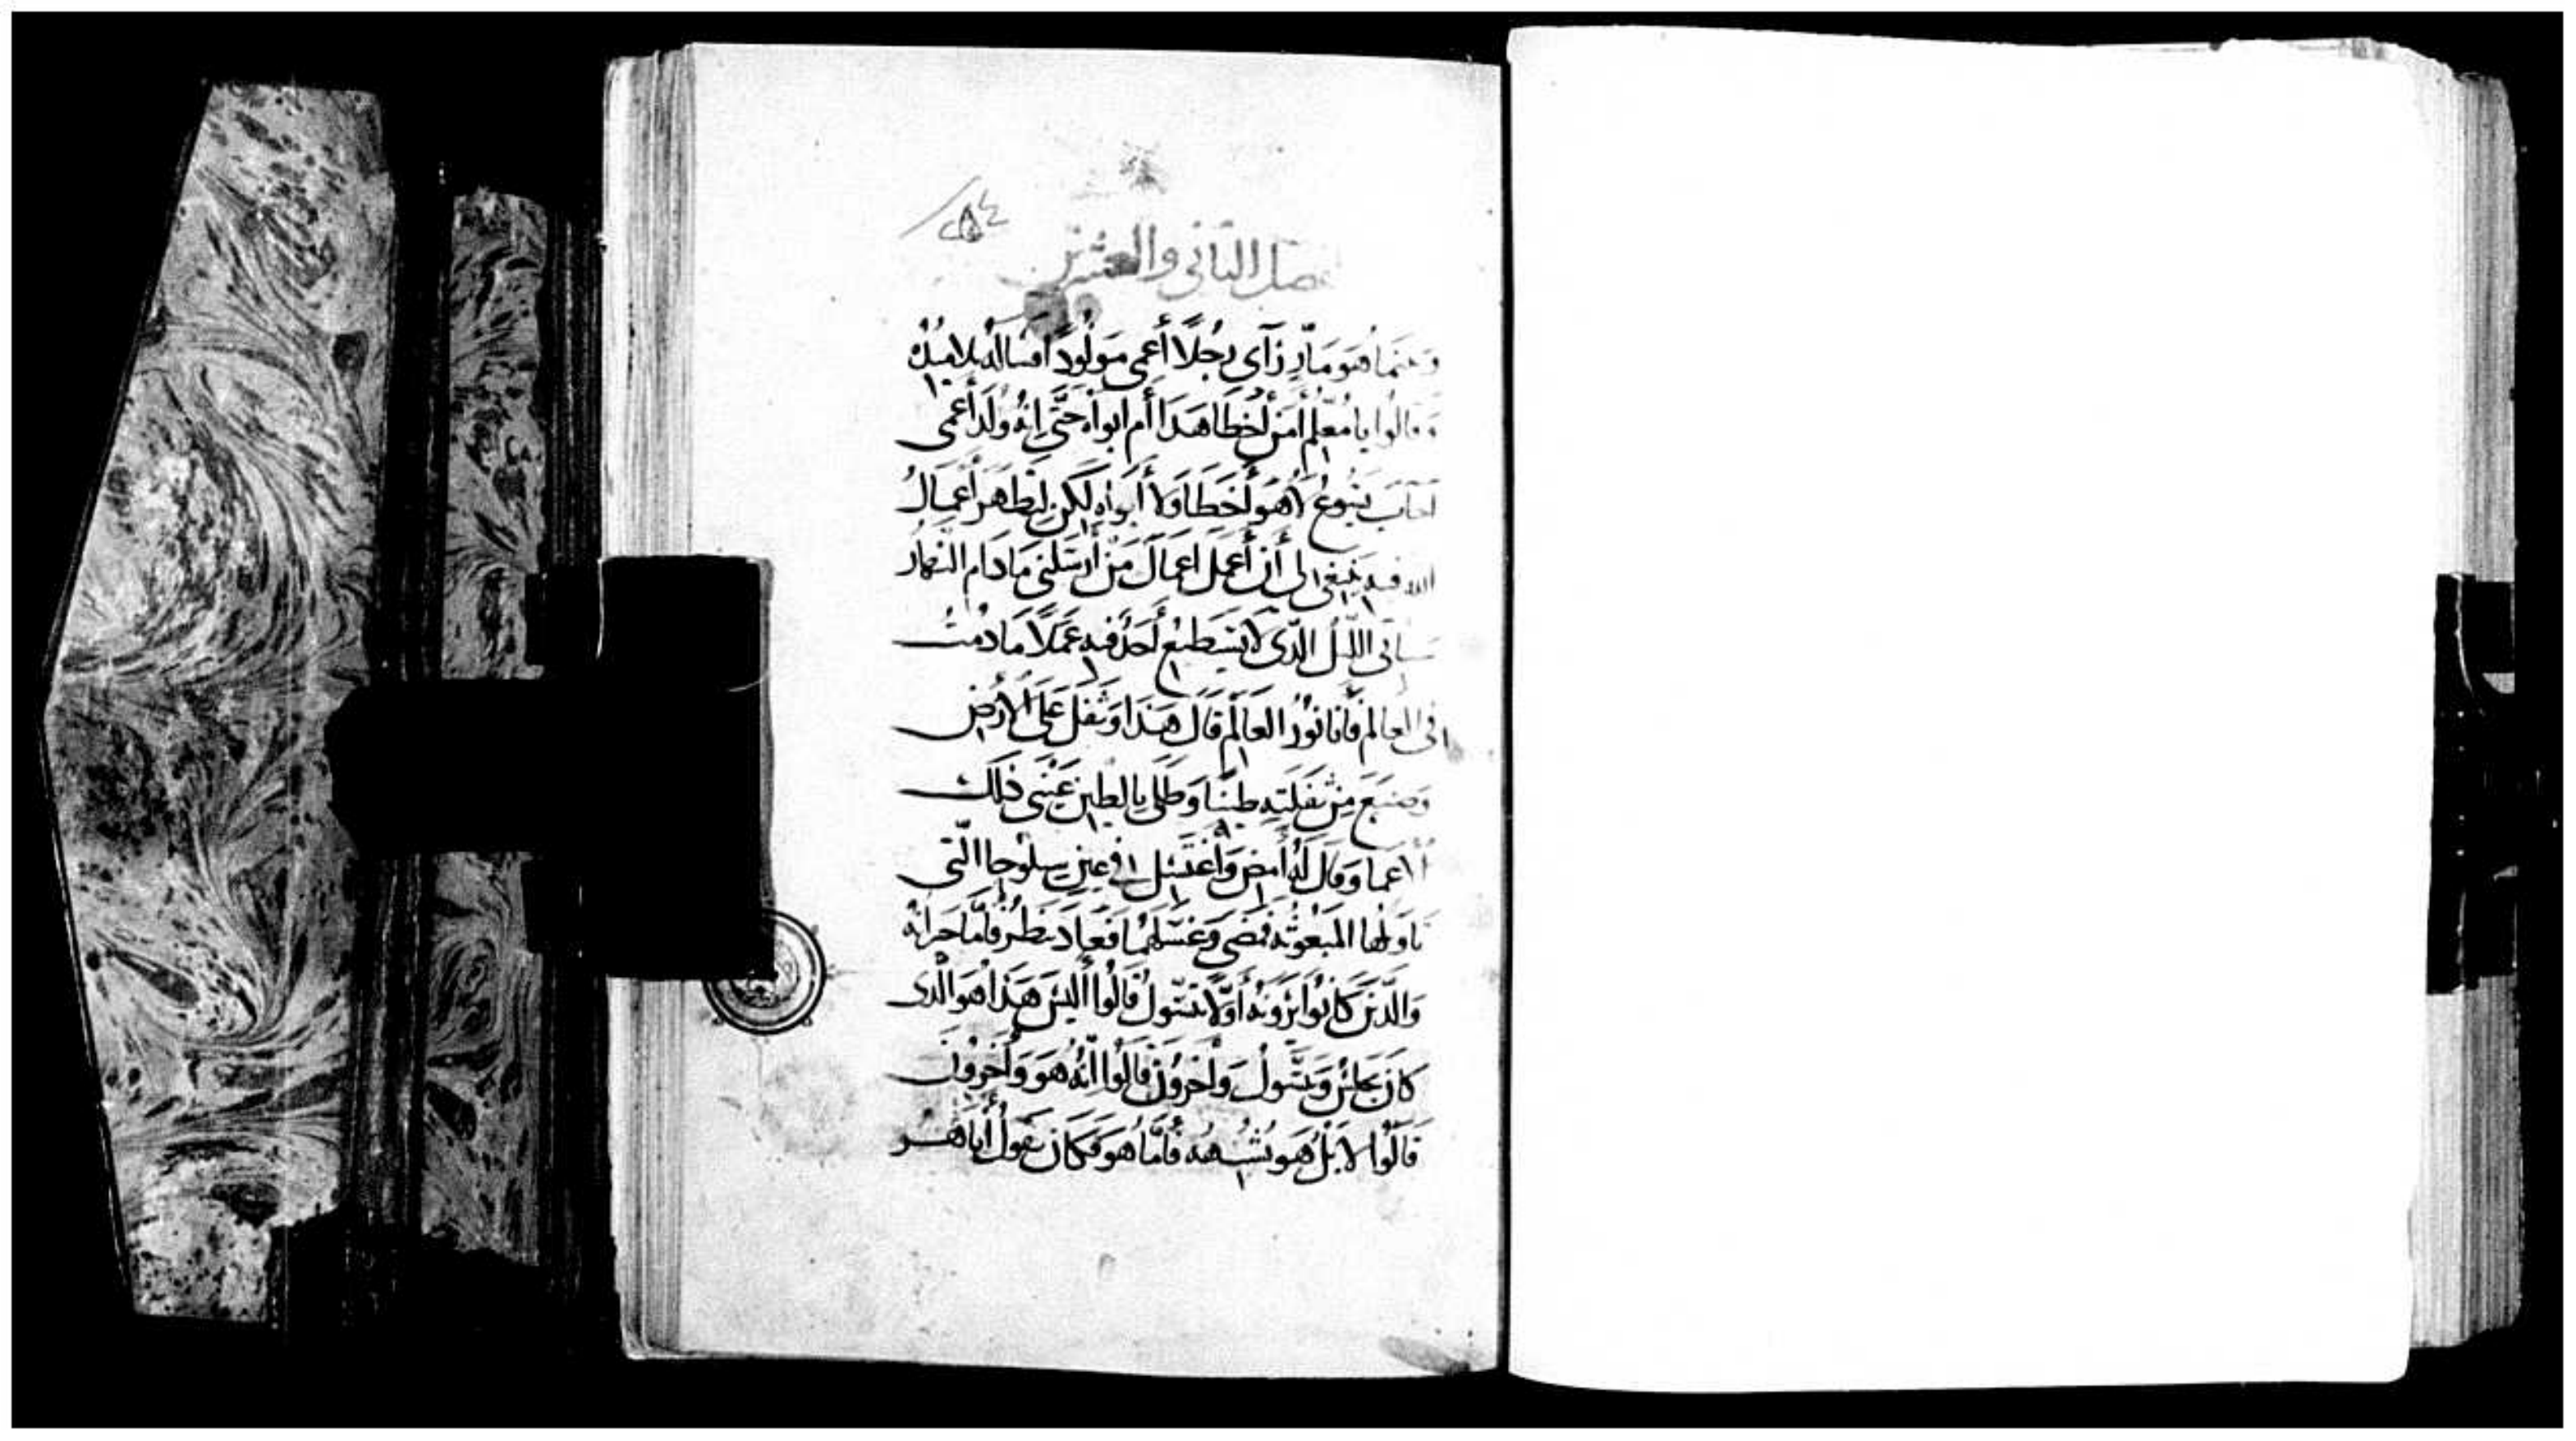 ٢٥٤
الفصل الثاني والعشرين
وبينما هو مارّ رَأى رجُلاً أَعمى مولُوداً فسالهُ تلاميذهُ
وقالوا يا مُعلّم أمَن أخطا هذا أم ابواه حتَّى إنهُ ولد أعمى
اجابَ يسوعُ لا هُو أخطا ولا أبواه لكن لتظهر أعمالُ
الله فيه ينبغى لى أن أعملَ اعمالَ مَن أرسَلنى مادَام النّهارُ
سياتى اللّيلُ الّذى لا يستطيع أحد فيه عَملاً ما دُمتُ
فى العالم فأنا نورُ العَالم قالَ هذا وتفل على الارضِ
وصنعَ مِن تفلته طيناً وطلى بالطين عينى ذلك
الأعما وقال لهُ أمض وأغتسل فى عين سلوحا الّتى
تاويلها المبعوثه فمضى وغسلهُما فعاد ينظر فأمّا جيرانهُ
والّذين كانُوا يرونهُ أوّلا يتسّول قالُوا أليسَ هذا هُو الّذى
كان يجلسُ ويتسّولُ وأخرون قالُوا إنّهُ هو وأخرونَ
قالُوا لا بَل هو يُشبههُ فأمّا هو فكان يقول أنا هو